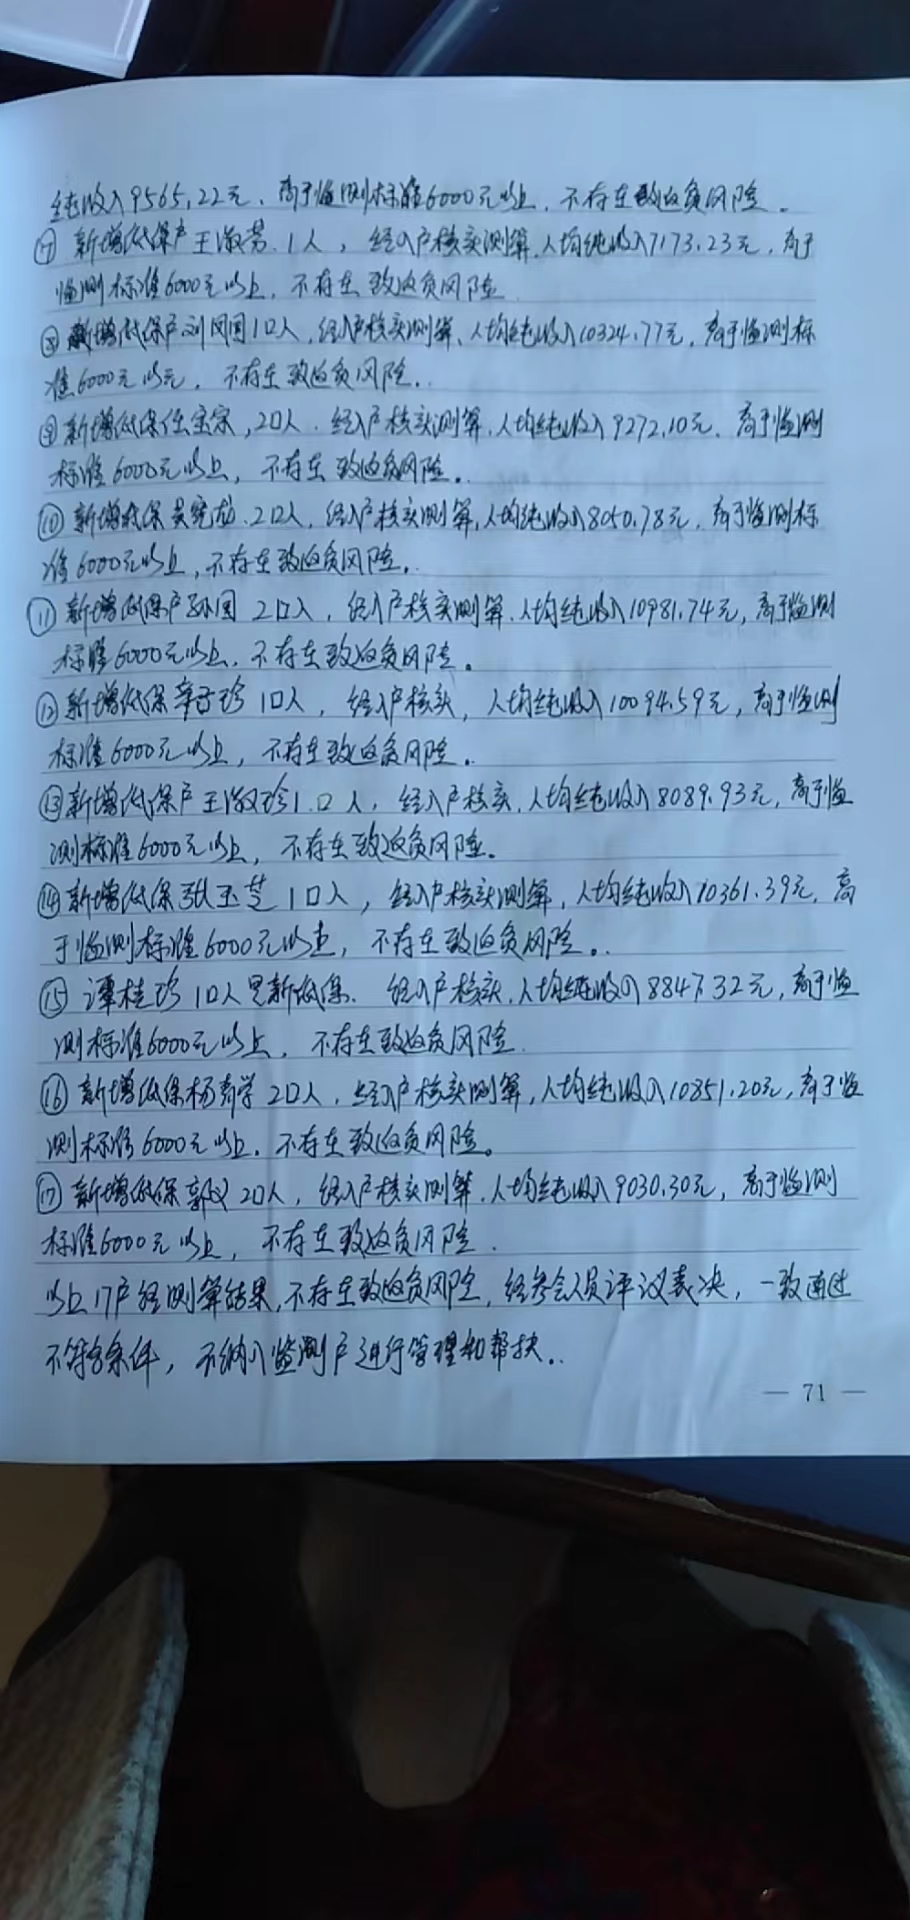 纯收入9565.22元,高于监测标准6000元以上,不存在致返贫风险。
⑦ 新增低保户王淑芳.1人,经入户核实测算.人均纯收入7173.23元,高于
监测标准6000元以上,不存在致返贫风险
⑧ 新增低保户刘凤国1口人,经入户核实测算,人均纯收入10324.77元,高于监测标
准6000元以元,不存在致返贫风险.
⑨ 新增低保任宝宗,2口人.经入户核实测算,人均纯收入9272.10元.高于监测
标准6000元以上,不存在致返贫风险.
⑩ 新增低保 2口人,经入户核实测算,人均纯收入8050.78元,高于监测标
准6000元以上,不存在致返贫风险.
⑪ 新增低保户 2口人,经入户核实测算.人均纯收入10981.74元,高于监测
标准6000元以上.不存在致返贫风险。
⑫ 新增低保 珍1口人,经入户核实,人均纯收入10094.59元,高于监测
标准6000元以上,不存在致返贫风险.
⑬ 新增低保户王淑珍1.口人,经入户核实.人均纯收入8089.93元,高于监
测标准6000元以上,不存在致返贫风险.
⑭ 新增低保张玉芝1口人,经入户核实测算,人均纯收入10361.39元,高
于监测标准6000元以上,不存在致返贫风险.
⑮ 谭桂珍1口人 新低保.经入户核实.人均纯收入8847.32元,高于监
测标准6000元以上,不存在致返贫风险.
⑯ 新增低保杨 学2口人,经入户核实测算,人均纯收入10851.20元,高于监
测标准6000元以上.不存在致返贫风险。
⑰ 新增低保郭义2口人,经入户核实测算.人均纯收入9030.30元,高于监测
标准6000元以上,不存在致返贫风险.
以上17户经测算结果,不存在致返贫风险,经参会人员评议表决,一致通过
不符合条件,不纳入监测户进行管理和帮扶.
— 71 —